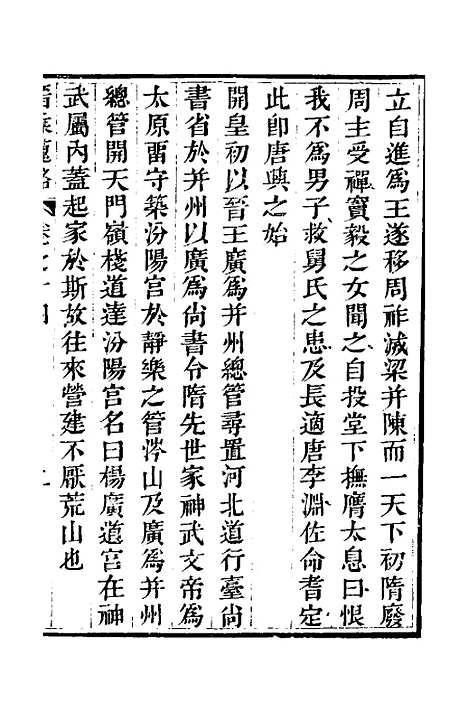 立自進為王遂移周祚滅梁并陳而一天下初隋廢
周主受禪竇毅之女聞之自投堂下撫膺太息曰恨
我不為男子救舅氏之患及長適唐李淵佐命耆定
此卽唐興之始
開皇初以晉王廣為并州總管尋置河北道行臺尚
書省於并州以廣為尚書令隋先世家神武文帝為
太原畱守築汾陽宮於靜樂之管涔山及廣為并州
總管開天門嶺棧道達汾陽宮名曰楊廣道宮在神
武屬內蓋起家於斯故往來營建不厭荒山也
晉乘蒐略 卷之十四